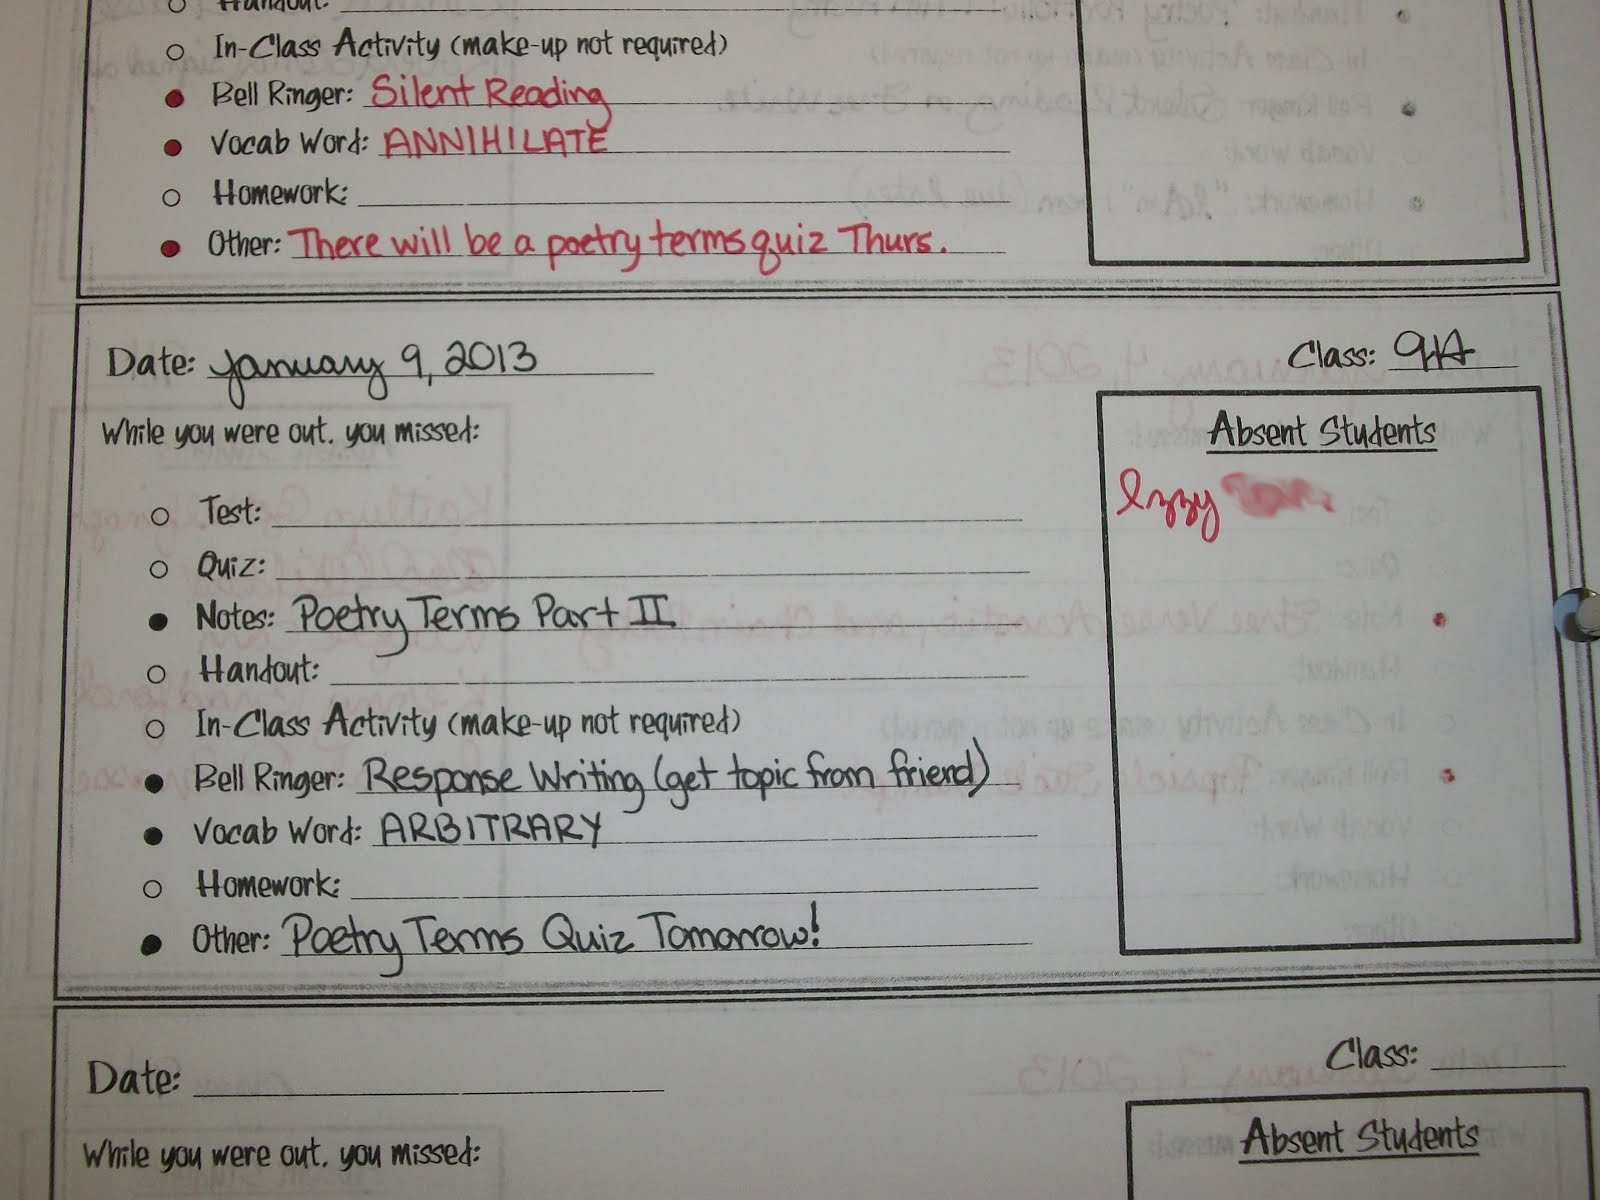 Handout:
In-Class Activity (make-up not required)
Bell Ringer: Silent Reading
Vocab Word: ANNIHILATE
Homework:
Other: There will be a poetry terms quiz Thurs.
Date: January 9, 2013
Class: 9A
While you were out, you missed:
Absent Students
Izzy
Test:
Quiz:
Notes: Poetry Terms Part II
Handout:
In-Class Activity (make-up not required)
Bell Ringer: Response Writing (get topic from friend)
Vocab Word: ARBITRARY
Homework:
Other: Poetry Terms Quiz Tomorrow!
Date:
Class:
While you were out, you missed:
Absent Students